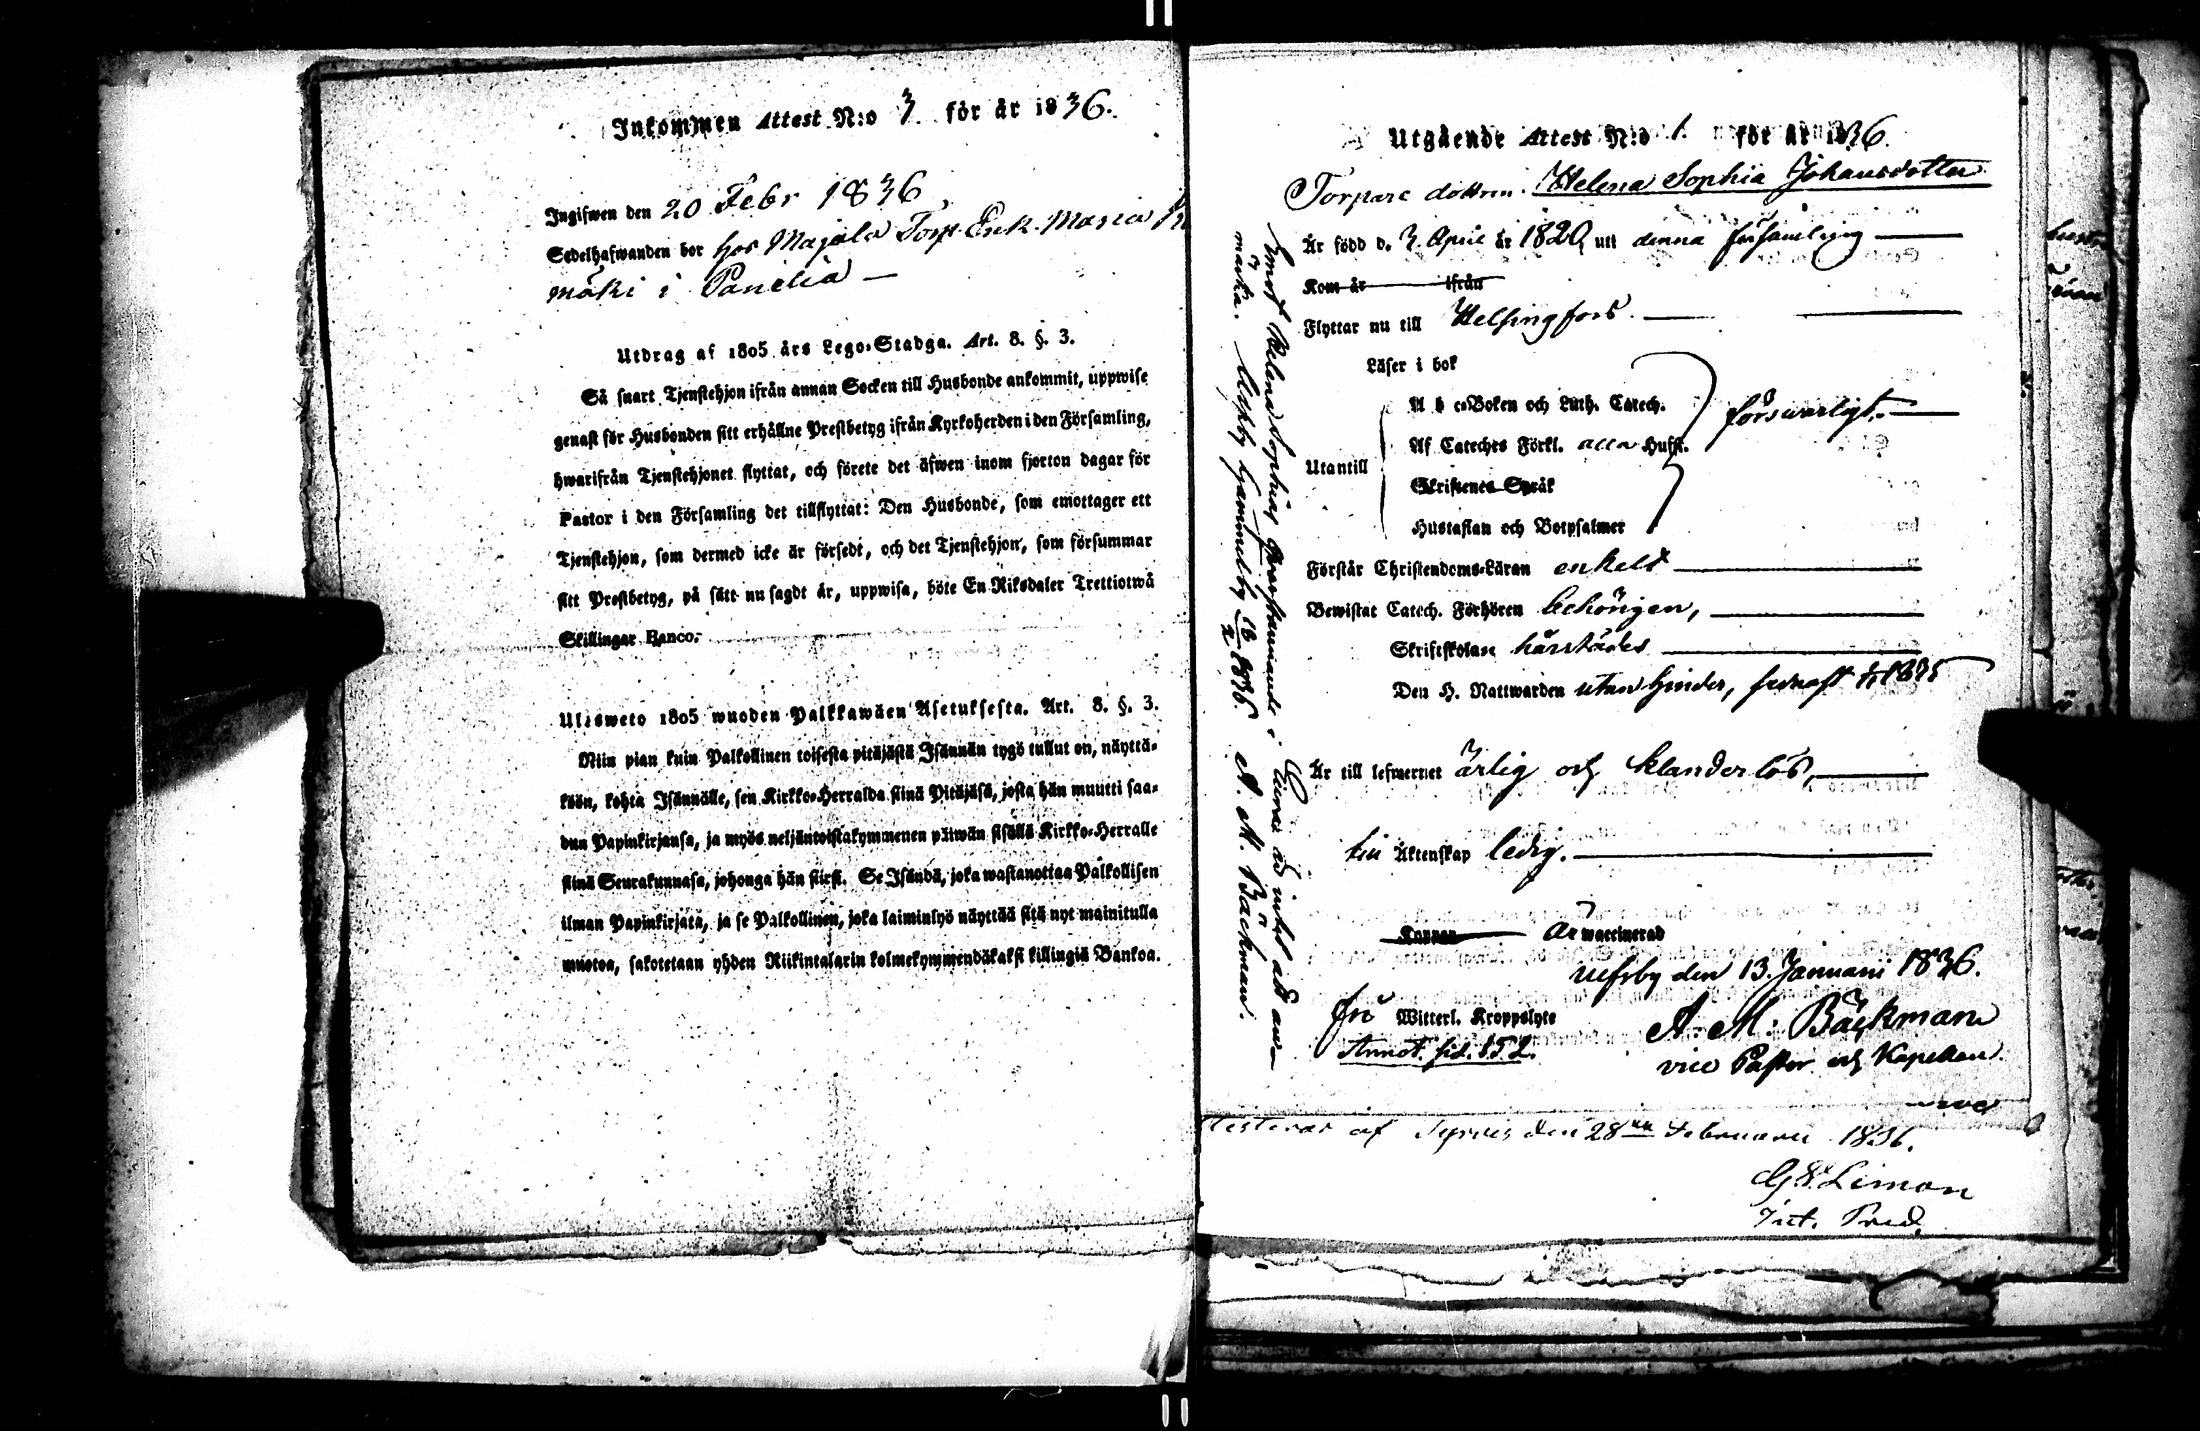 Inkommen Attest N:o 3 för år 1836.
Ingifwen den 20 Febr 1836
Sedelhafwanden bor hos Majala Torp. Enk. Maria
mäki i Panelia —
Utdrag af 1805 års Lego-Stadga. Art. 8. §. 3.
Så snart Tjenstehjon ifrån annan Socken till Husbonde ankommit, uppwise
genast för Husbonden sitt erhållne Prestbetyg ifrån Kyrkoherden i den Församling,
hwarifrån Tjenstehjonet flyttat, och förete det äfwen inom fjorton dagar för
Pastor i den Församling det tillflyttat: Den Husbonde, som emottager ett
Tjenstehjon, som dermed icke är försedt, och det Tjenstehjon, som försummar
sitt Prestbetyg, på sätt nu sagdt är, uppwisa, böte En Riksdaler Trettiotwå
Skillingar Banco.
Ulosweto 1805 wuoden Palkkawäen Asetuksesta. Art. 8. §. 3.
Niin pian kuin Palkollinen toisesta pitäjästä Isännän tygö tullut on, näyttä-
köön, kohta Isännälle, sen Kirkko-Herralda siinä Pitäjäsä, josta hän muutti saa-
dun Papinkirjansa, ja myös neljäntoistakymmenen päiwän sisällä Kirkko-Herralle
siinä Seurakunnasa, johonga hän siirsi. Se Isändä, joka wastanottaa Palkollisen
ilman Papinkirjata, ja se Palkollinen, joka laiminlyö näyttää sitä nyt mainitulla
muotoa, sakotetaan yhden Riikintalarin kolmekymmendäkaksi killingiä Bankoa.
Utgående Attest N:o 1. för år 1836.
Torpare dottren Helena Sophia Johansdotter
Är född d. 3 April år 1820, uti denna församling
Kom år ifrån
Flyttar nu till Helsingfors.
Läser i bok
A b c-Boken och Luth. Catech.
försvarligt.
Af Cateches Förkl. alla Hufst.
Utantill
Skriftenes Språk
Hustaflan och Botpsalmer
Förstår Christendoms-Läran enkelt
Bewistat Catech. Förhören behörigen,
Skriftskolan härstädes
Den H. Nattwarden utan hinder, senast 1835
Är till lefwernet ärlig och klanderlös,
till Äktenskap ledig.
Koppor Är waccinerad
Ulfsby den 13. Januarii 1836.
fri Witterl. Kroppslyte
A. M. Bäckman
Annot. sid. 152.
vice Pastor och Kapellan
Emot Helena Sophias qvarstannande i Eura är intet att an-
märka. Ulfsby Gammelby 16/2 1836. A. M. Bäckman.
den 28 Februarii 1836.
Limon